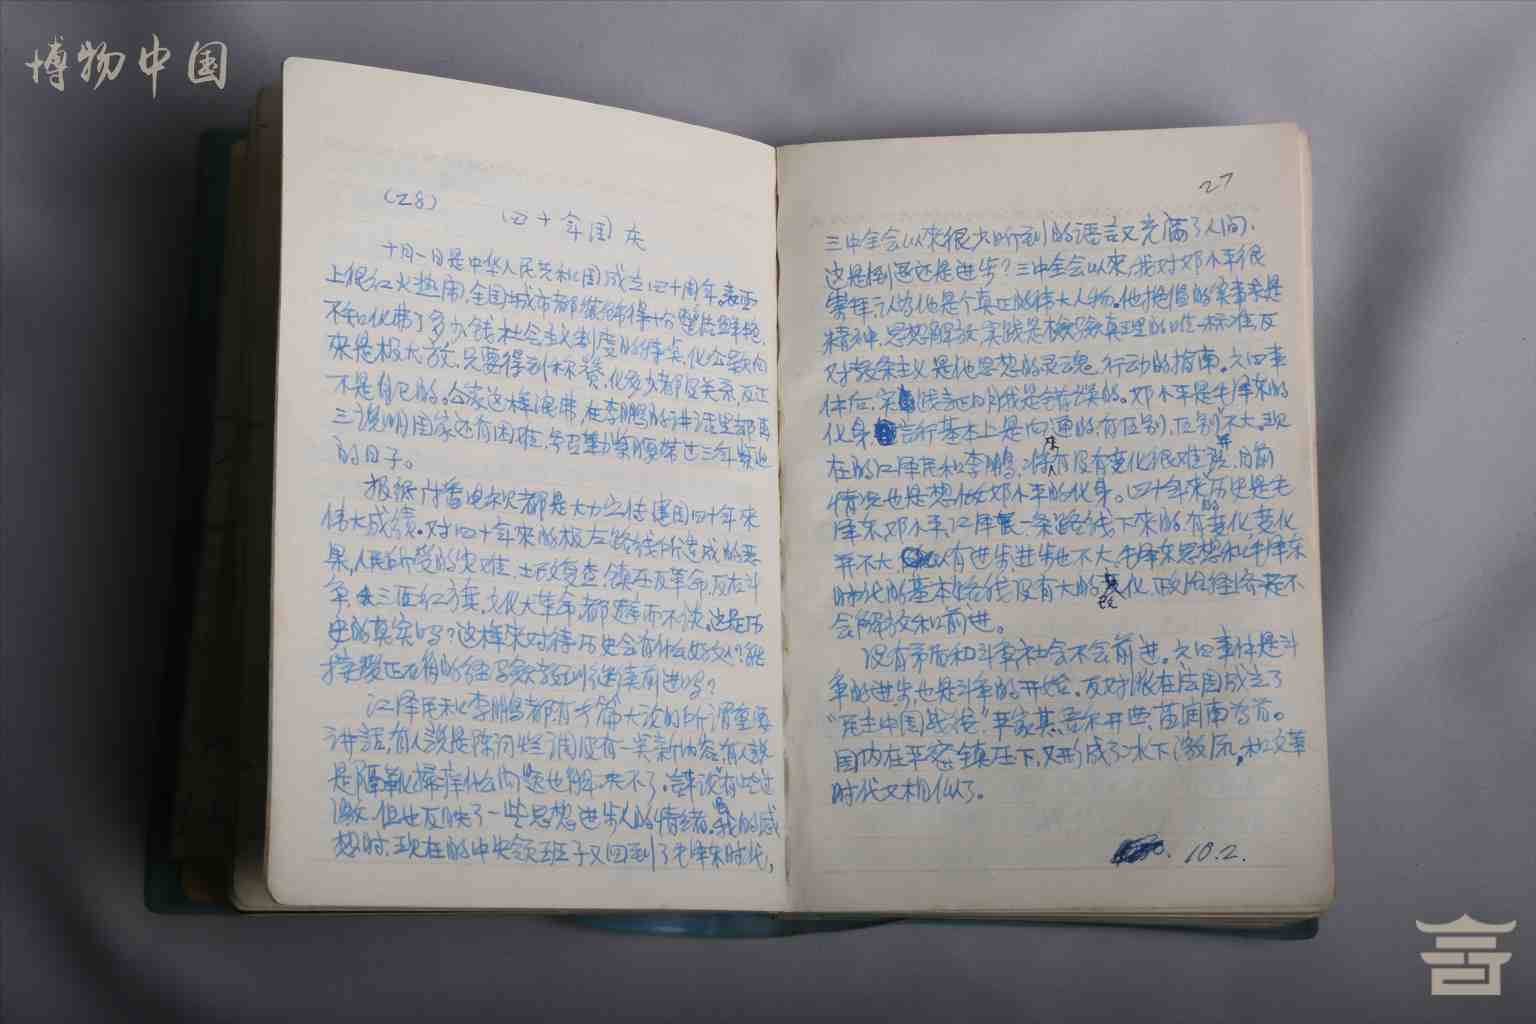 博物中国
(28)
四十年国庆
十月一日是中华人民共和国成立四十周年。表面
上很红火热闹,全国城市都装饰得十分整洁鲜艳,
不知化费了多少钱,社会主义制度的特点,化公款向
来是极大方,只要得到称赞,化多少都没关系,反正
不是自己的。公家这样浪费,在李鹏的讲话里都再
三说明国家还有困难,号召基
过三年紧迫
的日子。
报纸广播电视都是大力宣传建国四十年来
伟大成绩。对四十年来的极左路线所造成的恶
果,人民所受的灾难,土改复查、镇压反革命,反右斗
争,三面红旗,文化大革命都避而不谈。这是历
史的真实吗?这样来对待历史会有什么好效果?能
接受正反面的经验教训继续前进吗?
江泽民和李鹏都有长篇大论的所谓重要
讲话,有人说是陈词烂调没有一点新内容,有人说
是隔靴搔痒什么问题也解决不了。
说有些过
激,但也反映了一些思想进步人的情绪。我的感
想时,现在的中央领班子又回到了毛泽东时代,
27
三中全会以来很少听到的语言又充满了人间,
这是倒退还是进步?三中全会以来,我对邓小平很
崇拜,认为他是个真正的伟大人物。他提倡的实事求是
精神,思想解放,实践是检验真理的唯一标准,反
对教条主义是他思想的灵魂,行动的指南。六四事
件后,实践证明我是错误的。邓小平是毛泽东的
化身,言行基本上是向通的,有区别,区别不大,现
在的江泽民和李鹏,将来有没有变化很难说,目前
情况也是想做邓小平的化身。四十年来历史是毛
泽东、邓小平、江泽民一条路线下来的,有变化,变化
并不大,以有进步,进步也不大,毛泽东思想和毛泽东
时代的基本路线没有大的改变,政治体
是不
会解放和前进。
没有矛盾和斗争,社会不会前进。六四事件是斗
争的进步,也是斗争的开始。反对派在法国成立了
“民主中国战线”,严家其、吾尔开希、
为首。
国内在严密镇压下,又形成了水下激流,和文革
时代又相似了。
10.2.